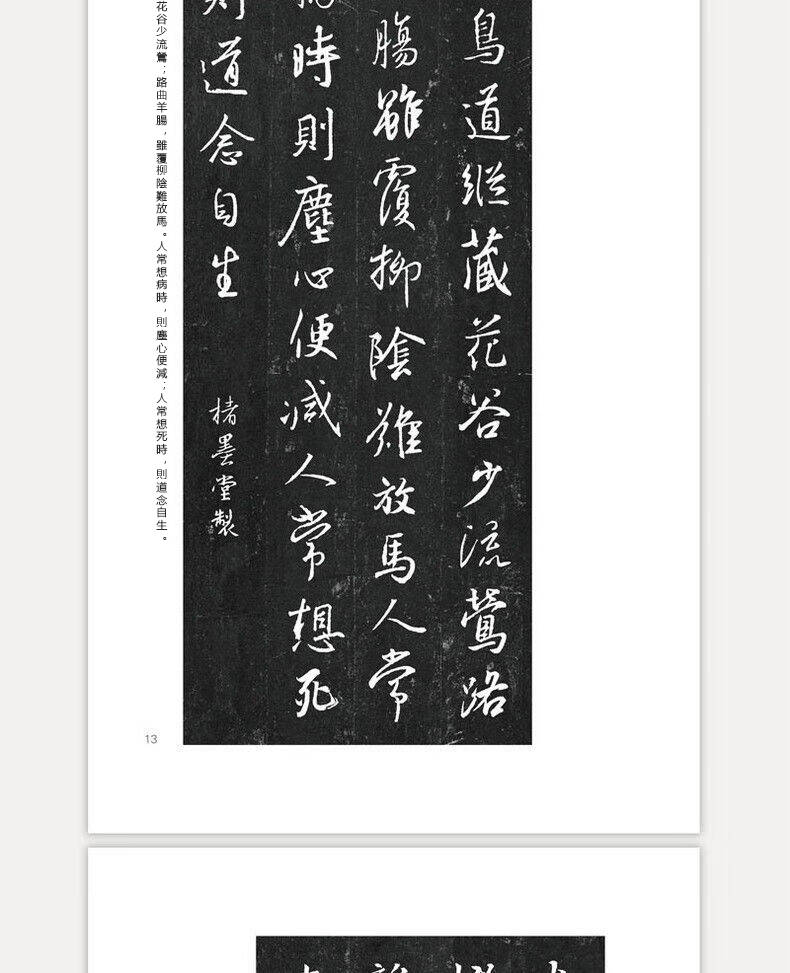 鳥道縱藏花谷少流鶯路
腸雖覆柳陰難放馬人常
時則塵心便減人常想死
則道念自生
楮墨堂製
花谷少流鶯；路曲羊腸，雖覆柳陰難放馬。人常想病時，則塵心便減；人常想死時，則道念自生。
13